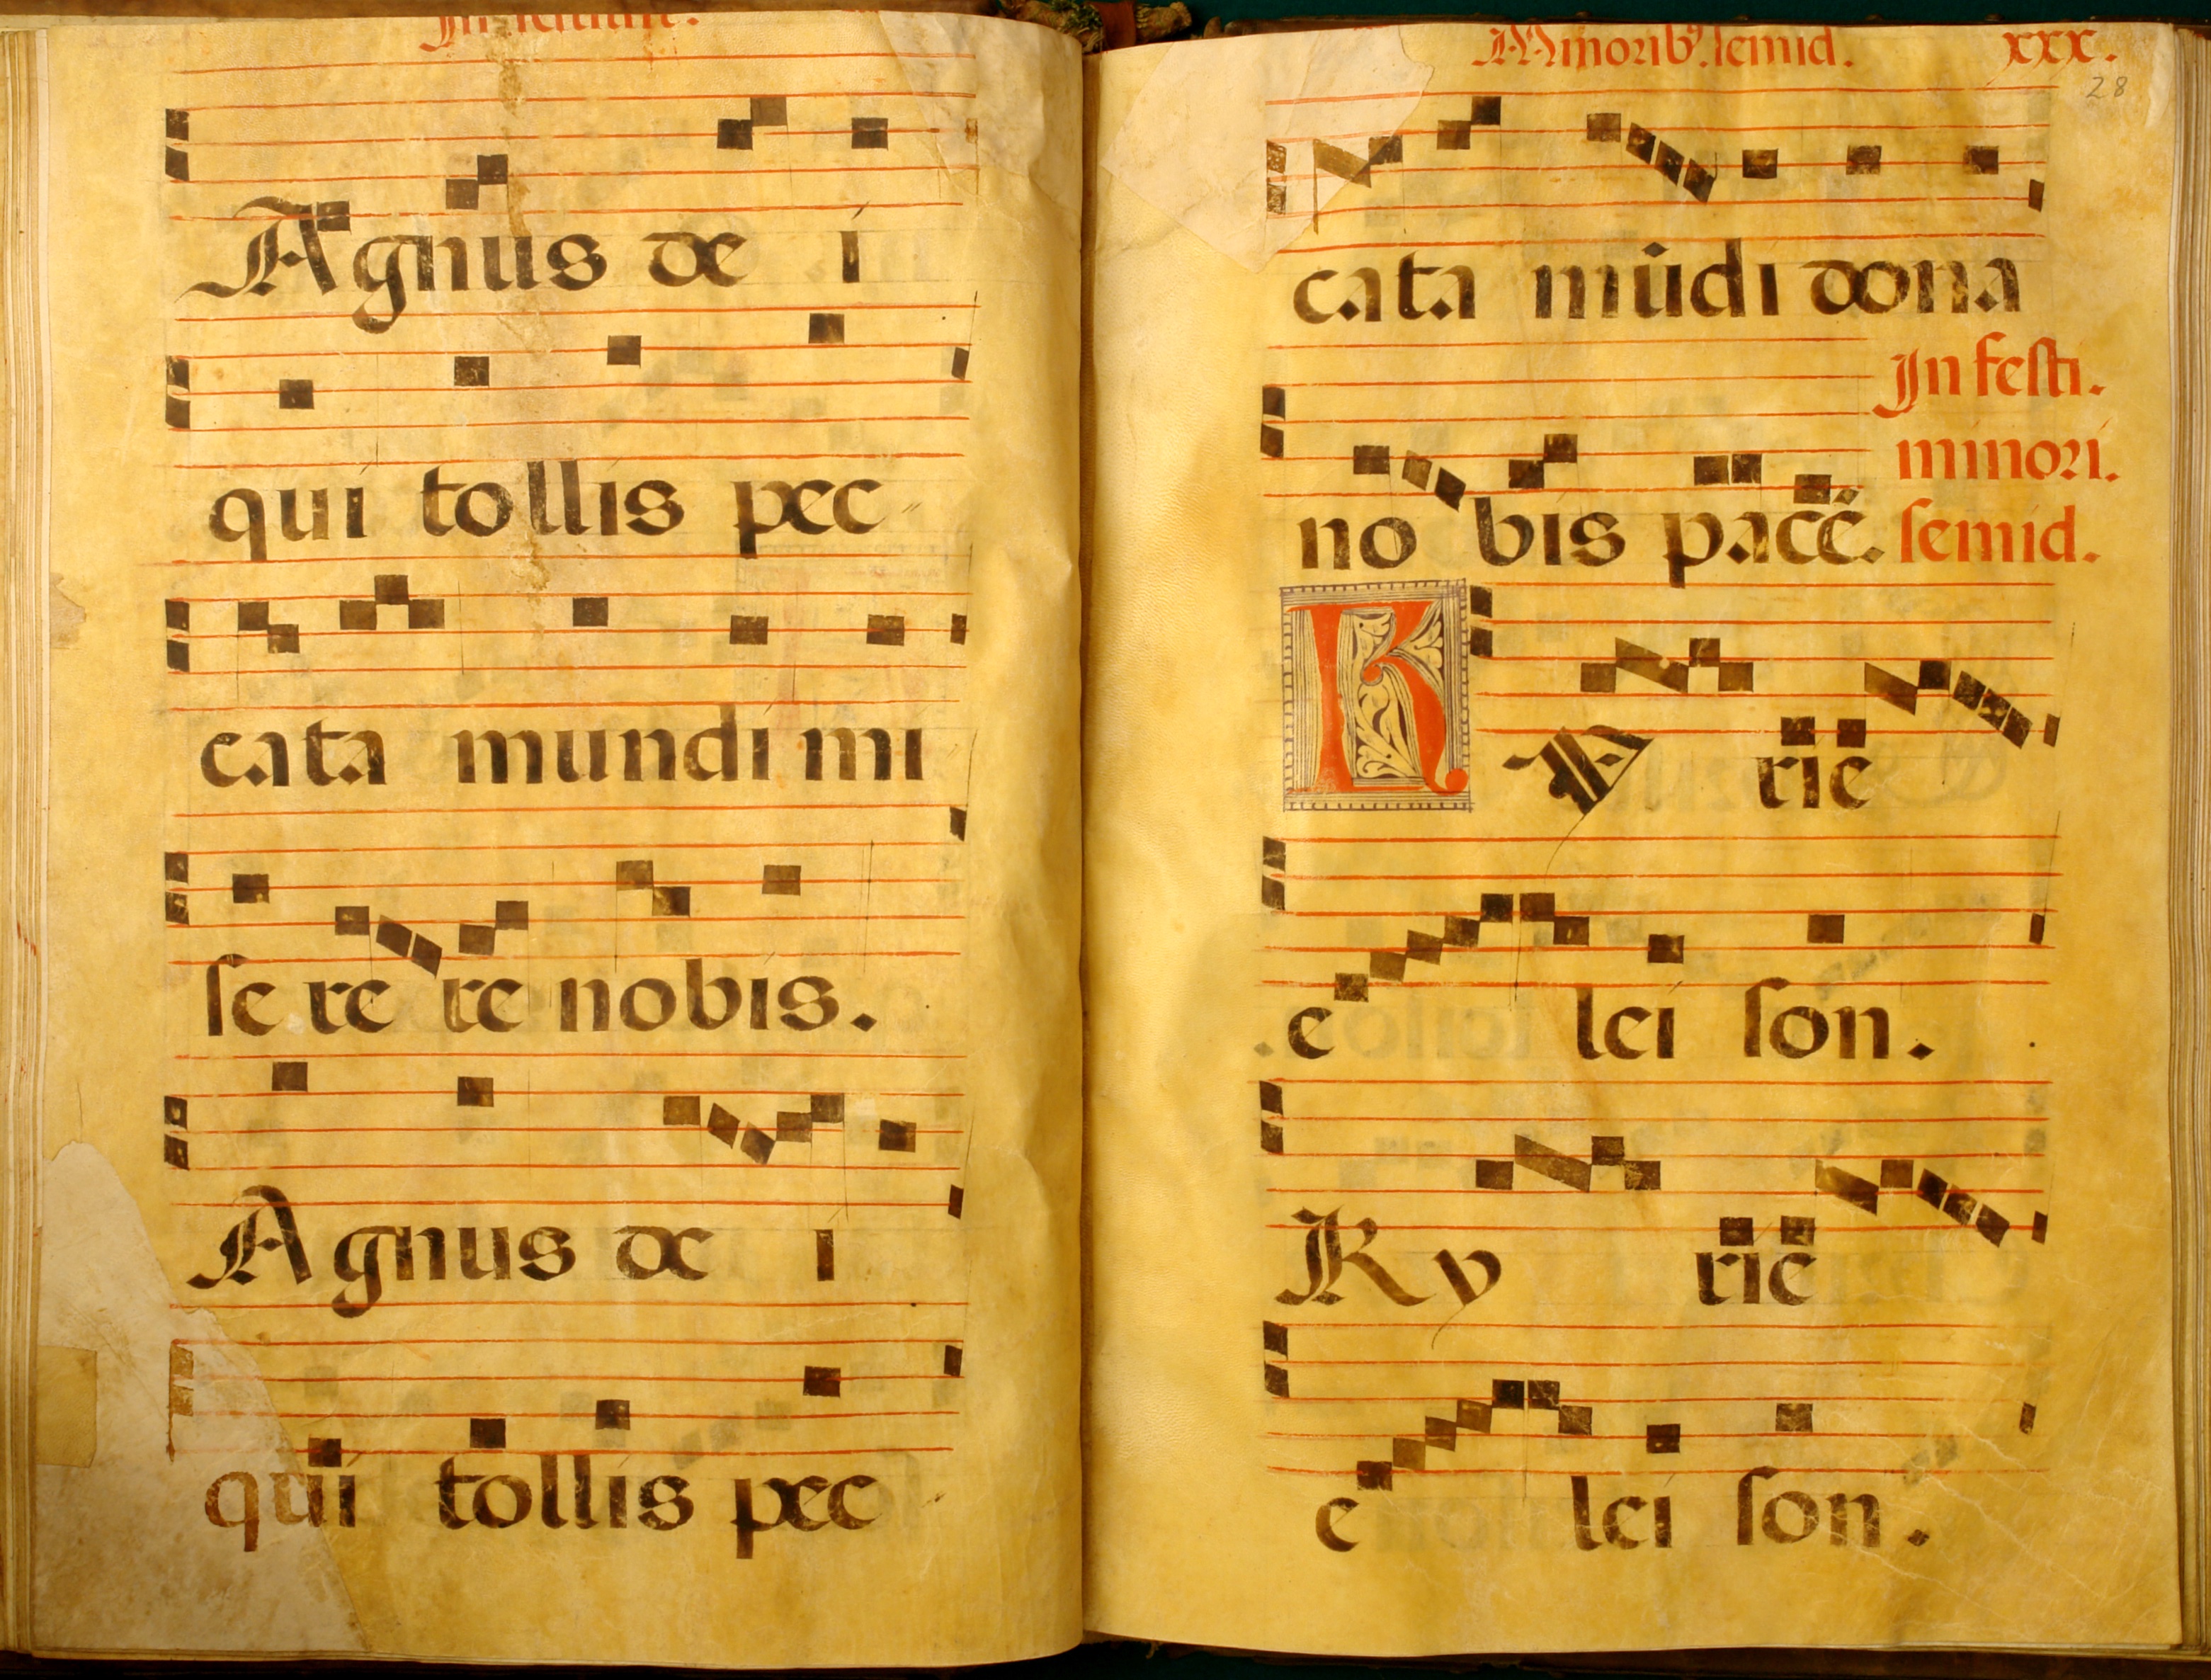 Agnus de i
qui tollis pec
cata mundi mi
ſe re re nobis.
Agnus de i
qui tollis pec
Minoribꝰ. ſemid. xxx.
28
cata mūdi dona
no bis pacē.
In feſti.
minori.
ſemid.
K y rie
e lei ſon.
Ky rie
e lei ſon.